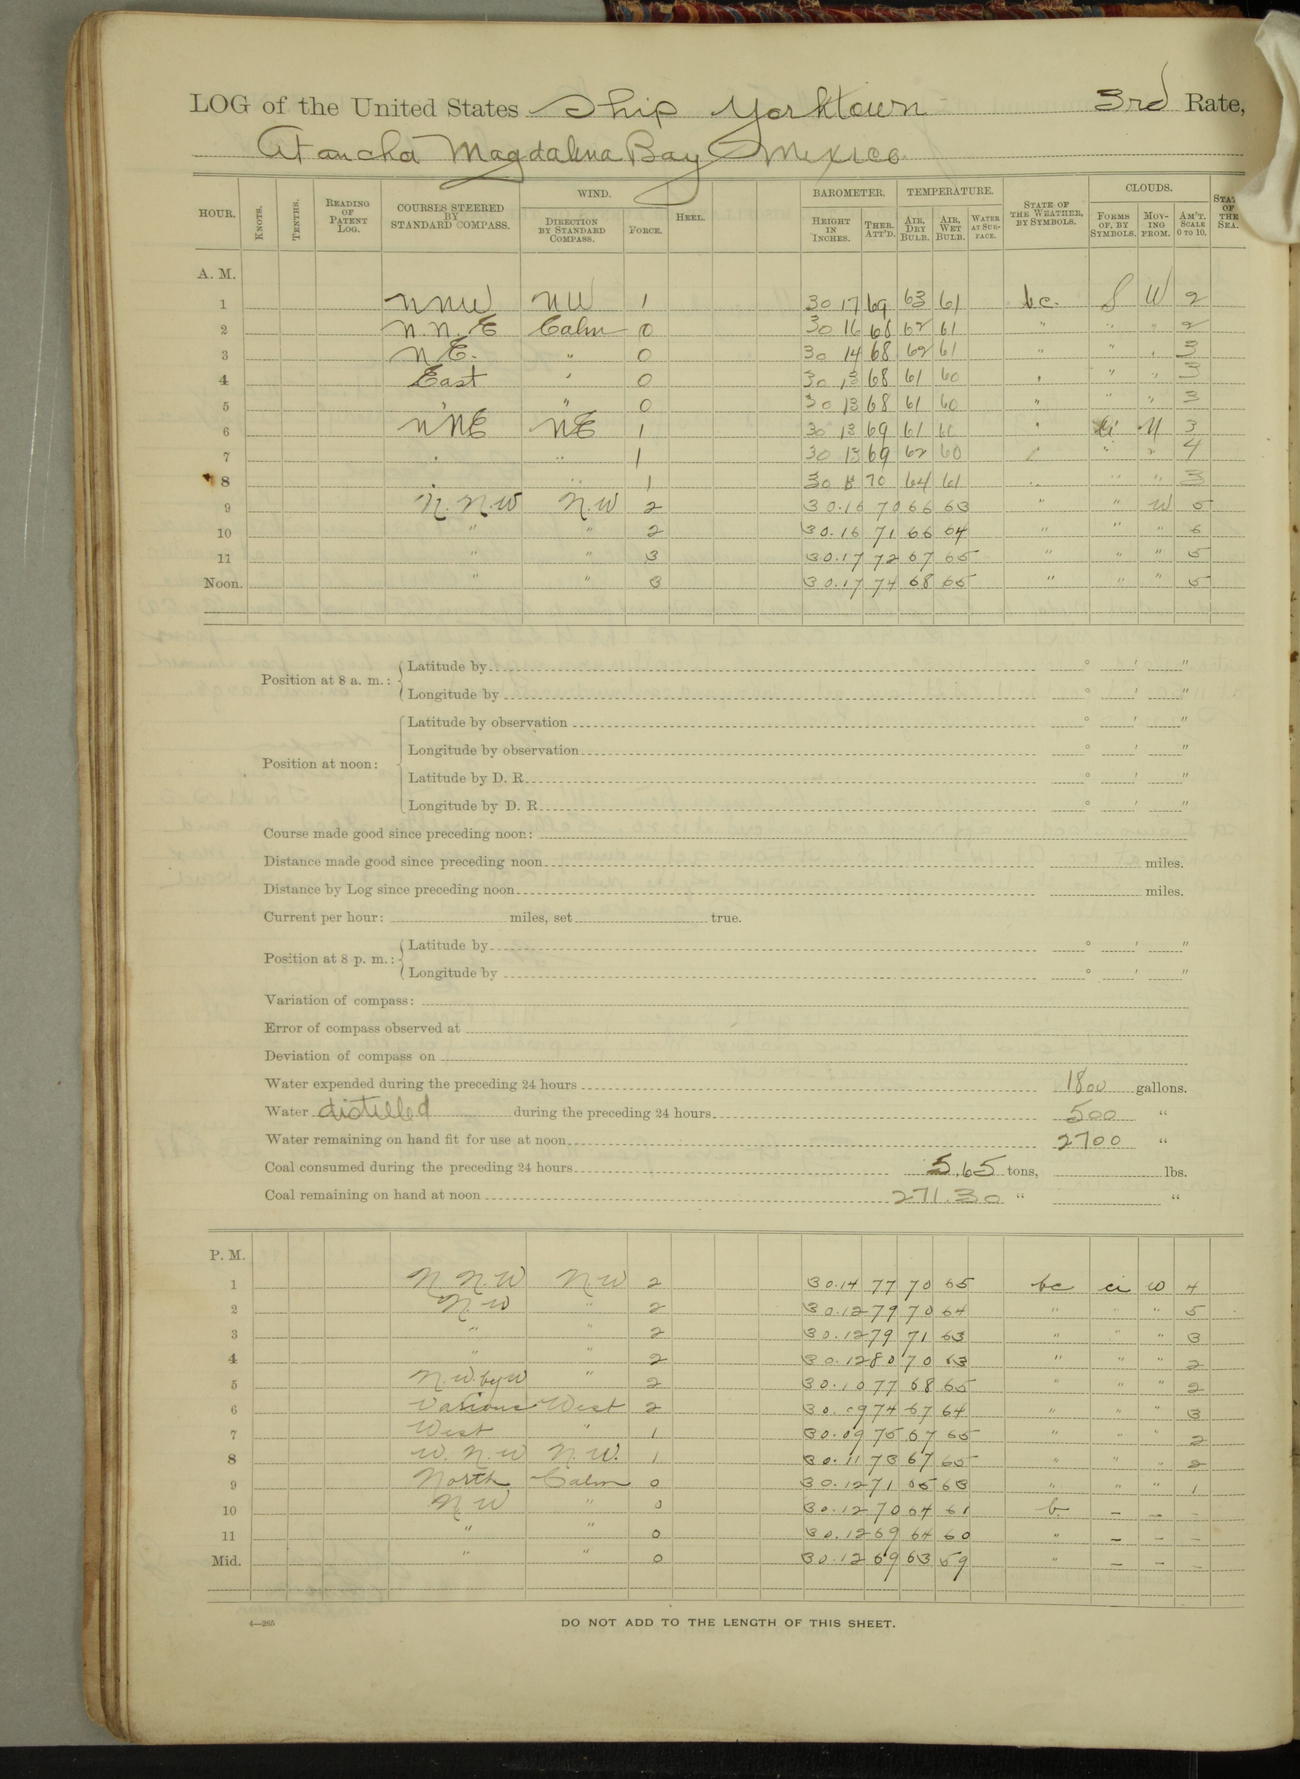 LOG of the United States Ship Yorktown 3rd Rate,
At anchor Magdalena Bay Mexico.
HOUR. KNOTS. TENTHS. READING OF PATENT LOG. COURSES STEERED BY STANDARD COMPASS. WIND. DIRECTION BY STANDARD COMPASS. FORCE. HEEL. BAROMETER. HEIGHT IN INCHES. THER. ATT'D. TEMPERATURE. AIR, DRY BULB. AIR, WET BULB. WATER AT SURFACE. STATE OF THE WEATHER, BY SYMBOLS. CLOUDS. FORMS OF, BY SYMBOLS. MOVING FROM. AM'T. SCALE 0 TO 10. STATE OF THE SEA.
A. M.
1 NNW NW 1 30 17 69 63 61 bc. S W 2
2 N.N.E Calm 0 30 16 68 62 61 " " " 2
3 NE. " 0 30 14 68 62 61 " " " 3
4 East " 0 30 13 68 61 60 " " " 3
5 " " 0 30 13 68 61 60 " " " 3
6 NNE NE 1 30 13 69 61 " Ci N 3
7 " " 1 30 13 69 62 60 " " " 4
8 " " 1 30 70 64 61 " " " 3
9 N.N.W N.W 2 30.16 70 66 63 " " W 5
10 " " 2 30.16 71 66 64 " " " 6
11 " " 3 30.17 72 67 65 " " " 5
Noon. " " 3 30.17 74 68 65 " " " 5
Position at 8 a. m.: Latitude by ° ' "
Longitude by ° ' "
Position at noon: Latitude by observation ° ' "
Longitude by observation ° ' "
Latitude by D. R. ° ' "
Longitude by D. R. ° ' "
Course made good since preceding noon:
Distance made good since preceding noon miles.
Distance by Log since preceding noon miles.
Current per hour: miles, set true.
Position at 8 p. m.: Latitude by ° ' "
Longitude by ° ' "
Variation of compass:
Error of compass observed at
Deviation of compass on
Water expended during the preceding 24 hours 1800 gallons.
Water distilled during the preceding 24 hours 500 "
Water remaining on hand fit for use at noon 2700 "
Coal consumed during the preceding 24 hours 5.65 tons, lbs.
Coal remaining on hand at noon 271.30 " "
P. M.
1 N.N.W N.W 2 30.14 77 70 65 bc ci W 4
2 N.W " 2 30.12 79 70 64 " " " 5
3 " " 2 30.12 79 71 63 " " " 3
4 " " 2 30.12 80 70 63 " " " 2
5 N.W.byW " 2 30.10 77 68 65 " " " 2
6 Various West 2 30.09 74 67 64 " " " 3
7 West " 1 30.09 75 67 65 " " " 2
8 W.N.W N.W. 1 30.11 73 67 65 " " " 2
9 North Calm 0 30.12 71 65 63 " " " 1
10 N.W " 0 30.12 70 64 61 b. – – –
11 " " 0 30.12 69 64 60 " – – –
Mid. " " 0 30.12 69 63 59 " – – –
4—265
DO NOT ADD TO THE LENGTH OF THIS SHEET.